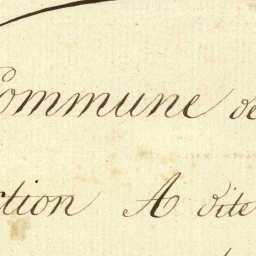 Commune de
ction A dite